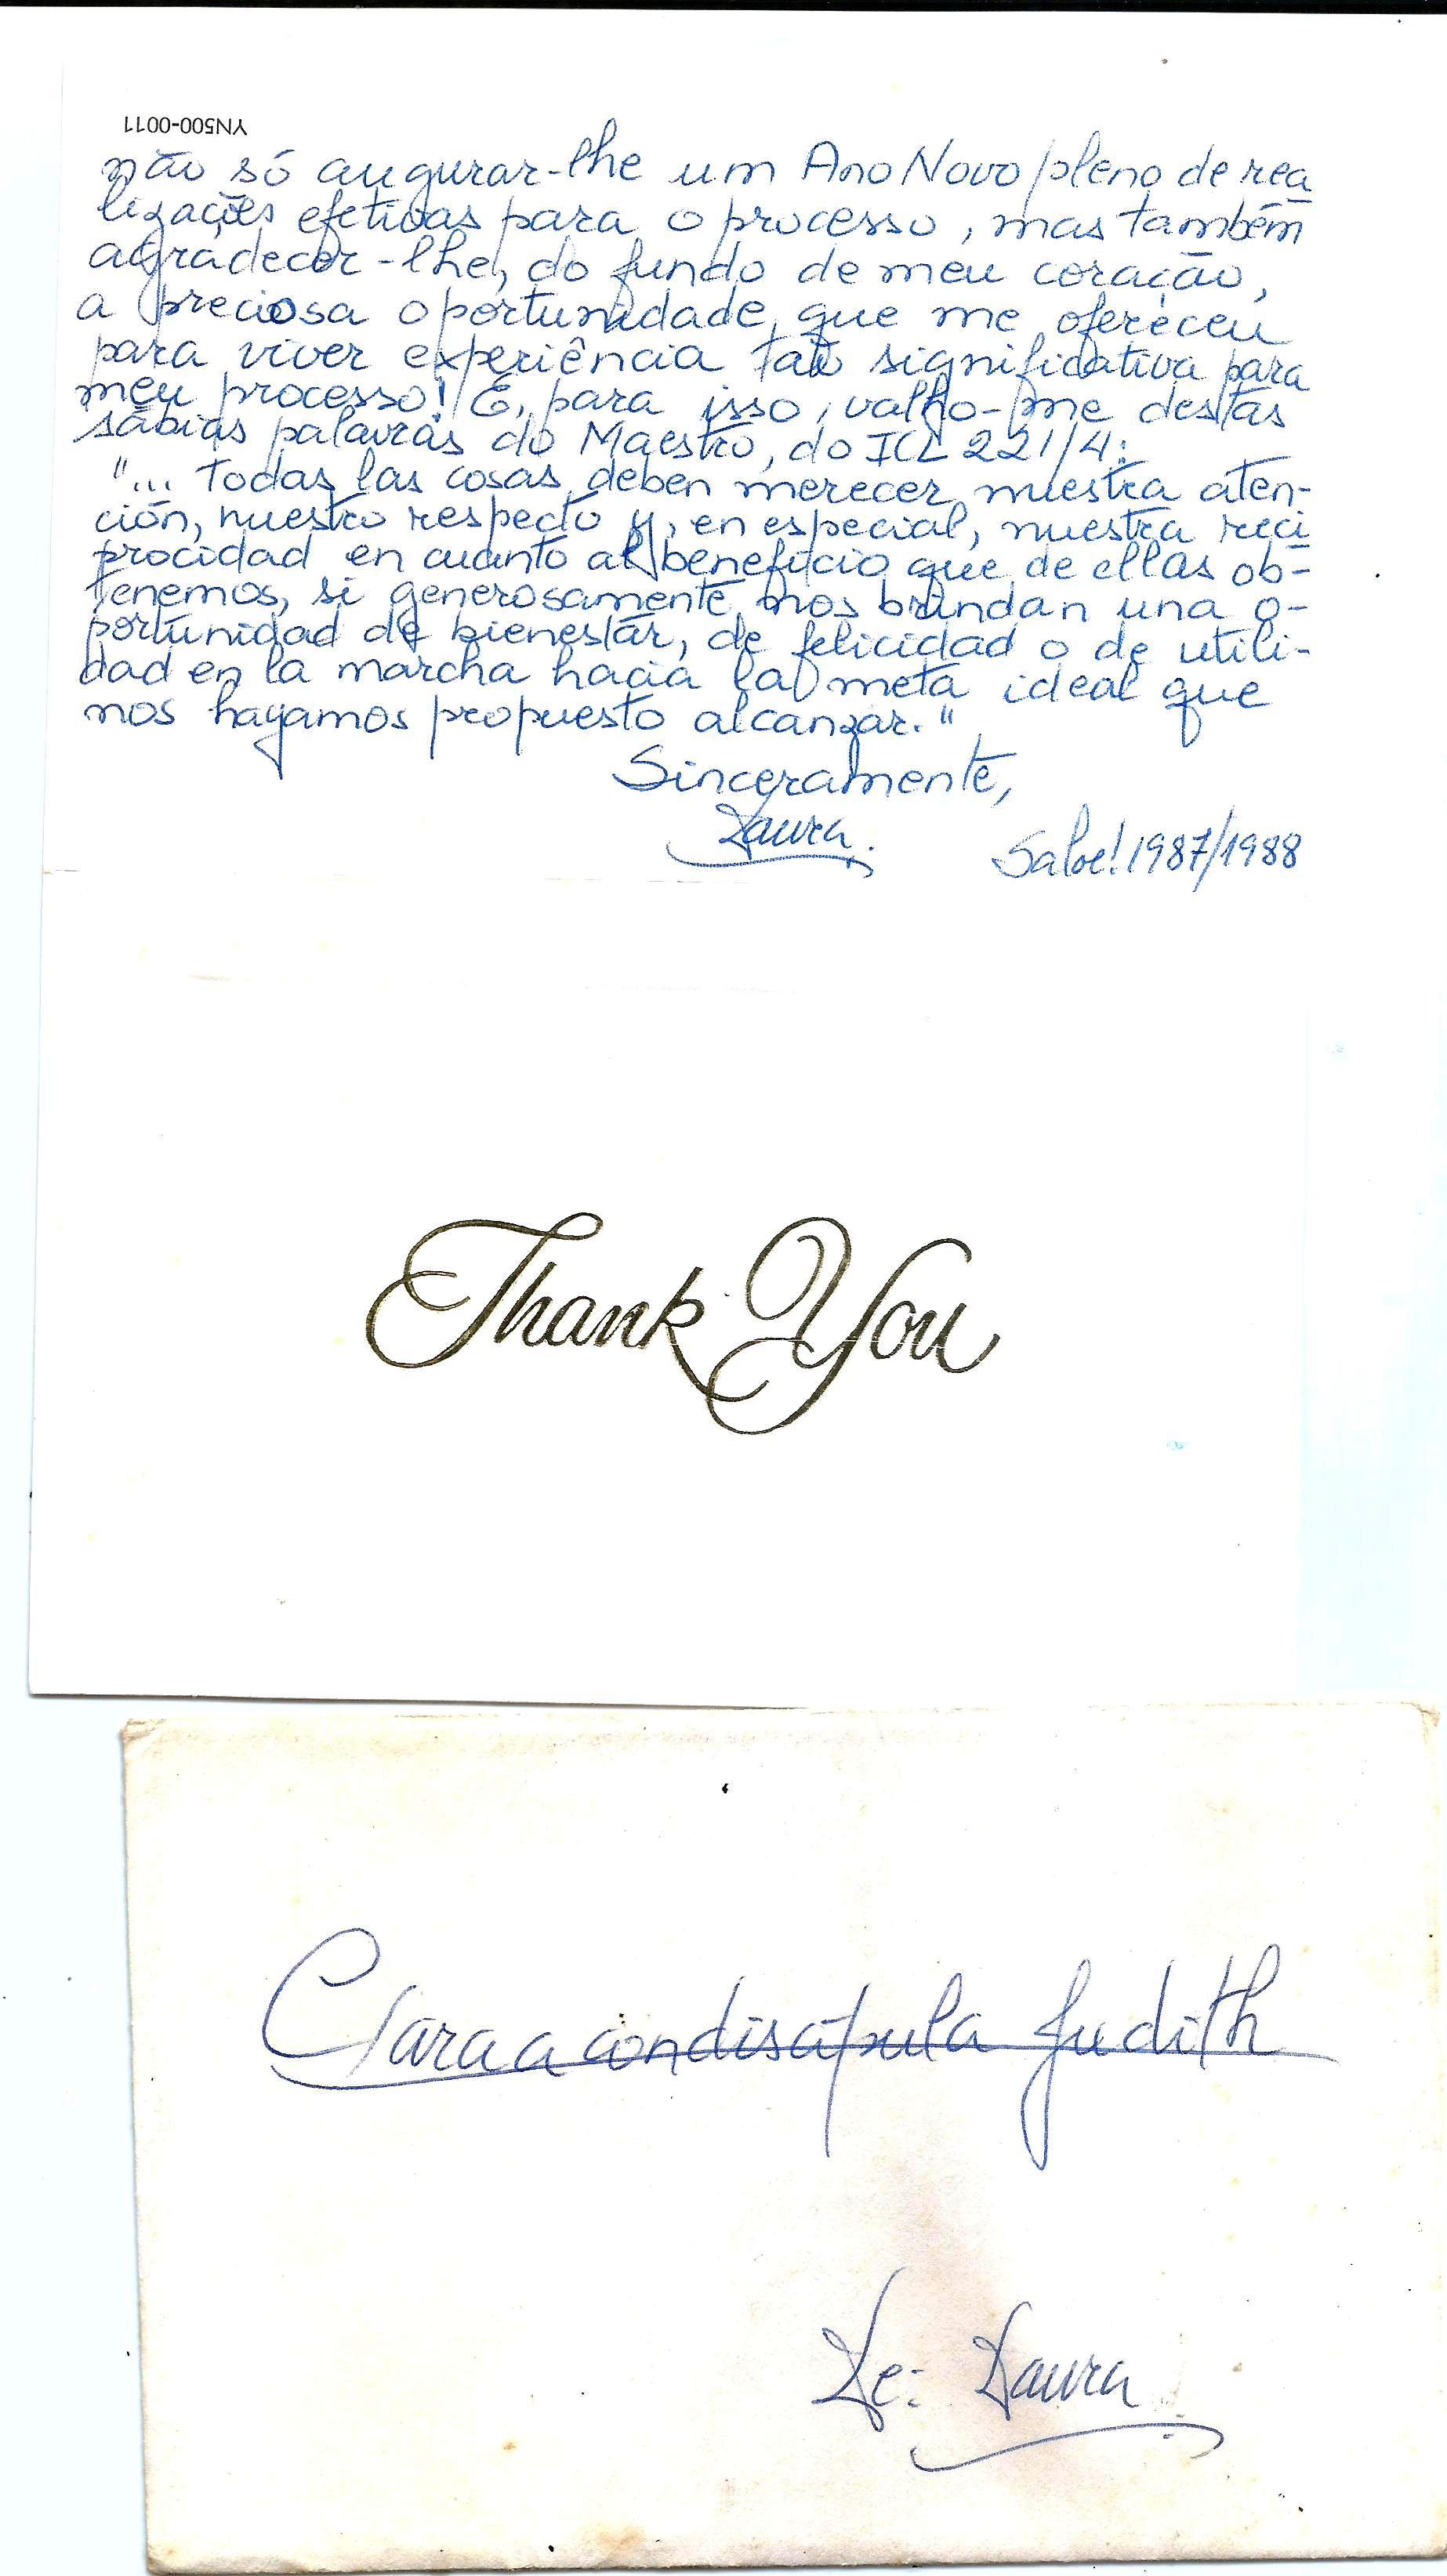 YN500-0011
não só augurar-lhe um Ano Novo pleno de rea
lizações efetivas para o processo, mas também
agradecer-lhe, do fundo de meu coração,
a preciosa oportunidade que me ofereceu
para viver experiência tão significativa para
meu processo! E, para isso, valho-me destas
sábias palavras do Maestro, do ICL 221/4:
"... todas las cosas deben merecer nuestra aten-
ción, nuestro respecto y, en especial, nuestra reci
procidad en cuanto al beneficio que de ellas ob-
tenemos, si generosamente nos brindan una o-
portunidad de bienestar, de felicidad o de utili-
dad en la marcha hacia la meta ideal que
nos hayamos propuesto alcanzar."
Sinceramente,
Laura.
Salve! 1987/1988
Thank You
Para a condiscípula Judith
De: Laura